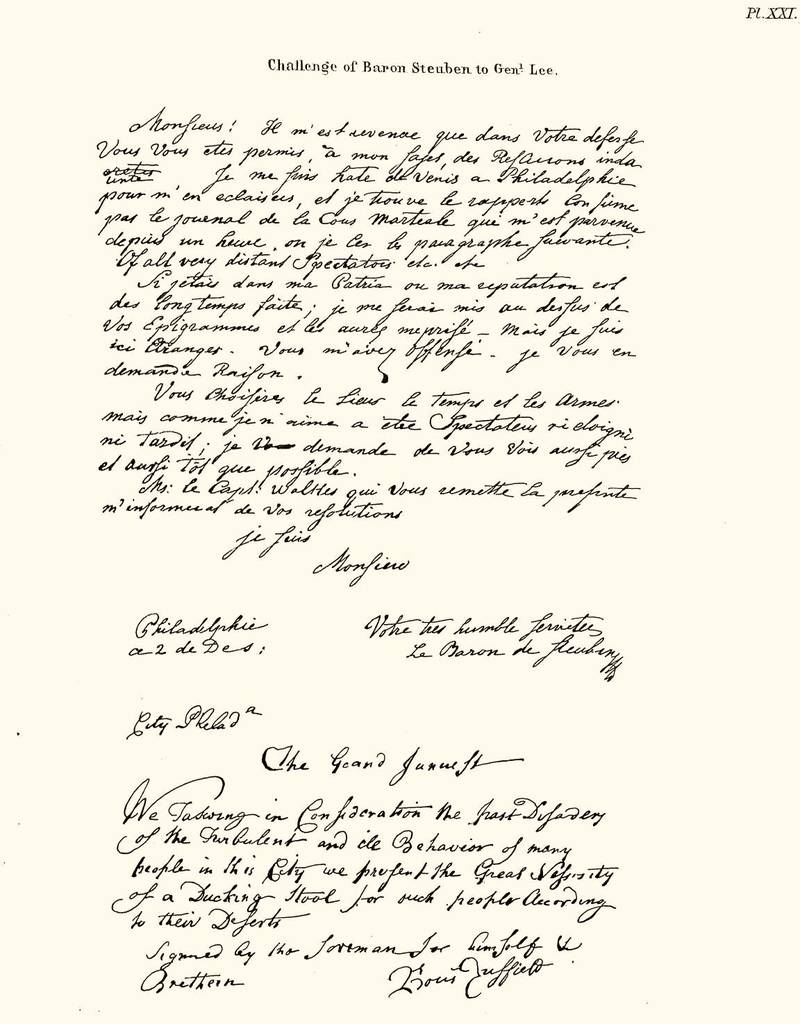 Pl. XXI.
Challenge of Baron Steuben to Genl. Lee.
Monsieur! Il m'est revenue que dans Votre defense
Vous Vous etes permis, a mon sujet, des Reflections inda
Je me suis hate de Venir a Philadelphie
pour m'en eclaircir, et je trouve le rapport Confirme
par le journal de la Cour Martiale qui m'est parvenue
depuis un heure, ou je lis le paragraphe suivante.
Of all very distant Spectators etc. etc
Si j'etais dans ma Patria ou ma reputation est
des longtemps faite; je me serai mis au dessus de
Vos Epigrammes et les aurés meprisé — Mais je suis
ici Etranger. Vous m'avez Offensé. je Vous en
demande Raison.
Vous Choisires le Lieu le temps et les Armes.
mais comme je n'aime a etre Spectateur ni eloigné
ni Tardif; je demande de Vous Voir aussi pres
et aussi tôt que possible.
Mr: le Capt: Walkes qui Vous remette la presente
m'informerat de Vos resolutions
je suis
Monsieur
Philadelphie
Votre tres humble Serviteur
ce 2 de Des:
Le Baron de Steuben
City Philada
The Grand Inquest
We Taking in Consideration the past Disordery
of the Turbulent and ile Behavior of many
people in this City we present the Great Nessisity
of a Ducking Stool for such people According
to their Deserts
Signned by the foreman for himself &
Brethern